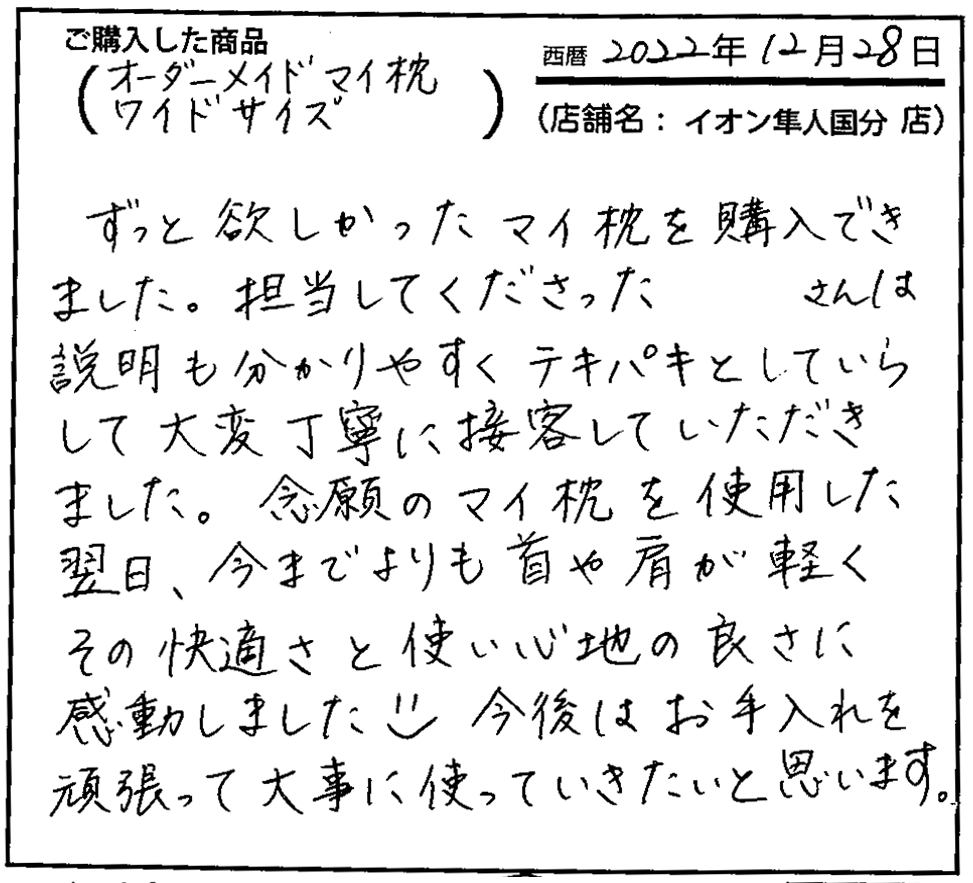 ご購入した商品
(オーダーメイドマイ枕
ワイドサイズ)
西暦 2022年12月28日
(店舗名: イオン隼人国分 店)
ずっと欲しかったマイ枕を購入でき
ました。担当してくださった さんは
説明も分かりやすくテキパキとしていら
して大変丁寧に接客していただき
ました。念願のマイ枕を使用した
翌日、今までよりも首や肩が軽く
その快適さと使い心地の良さに
感動しました 今後はお手入れを
頑張って大事に使っていきたいと思います。